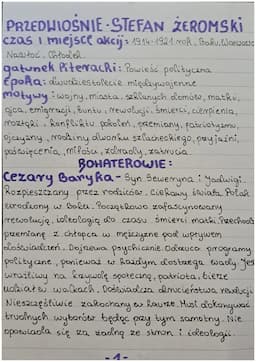 PRZEDWIOŚNIE - STEFAN ŻEROMSKI
czas i miejsce akcji: 1914-1924 rok, Baku, Warszawa
Nawłoć, Chłodek
gatunek literacki: Powieść polityczna
epoka: dwudziestolecie międzywojenne
motywy: wojny, miasta, szklanych domów, matki,
ojca, emigracji, buntu, rewolucji, śmierci, cierpienia,
rozłąki, konfliktu pokoleń, przemiany, patriotyzmu,
ojczyzny, rodziny, dworku szlacheckiego, przyjaźni,
poświęcenia, miłości, zdrady, zabójca
BOHATEROWIE:
Cezary Baryka - Syn Seweryna i Jadwigi.
Rozpieszczany przez rodziców. Ciekawy świata Polak
urodzony w Baku. Początkowo zafascynowany
rewolucją, ideologią do czasu śmierci matki. Przechodzi
przemianę z chłopca w mężczyznę pod wpływem
doświadczeń. Dojrzewa psychicznie. Odrzuca programy
polityczne, ponieważ w każdym dostrzega wady. Jest
wrażliwy na krzywdę społeczną, patriota, bierze
udział w walkach. Doświadcza okrucieństwa rewolucji.
Nieszczęśliwie zakochany w Laurze. Musi dokonywać
trudnych wyborów będąc przy tym samotny. Nie
opowiada się za żadną ze stron i ideologii.
-1-